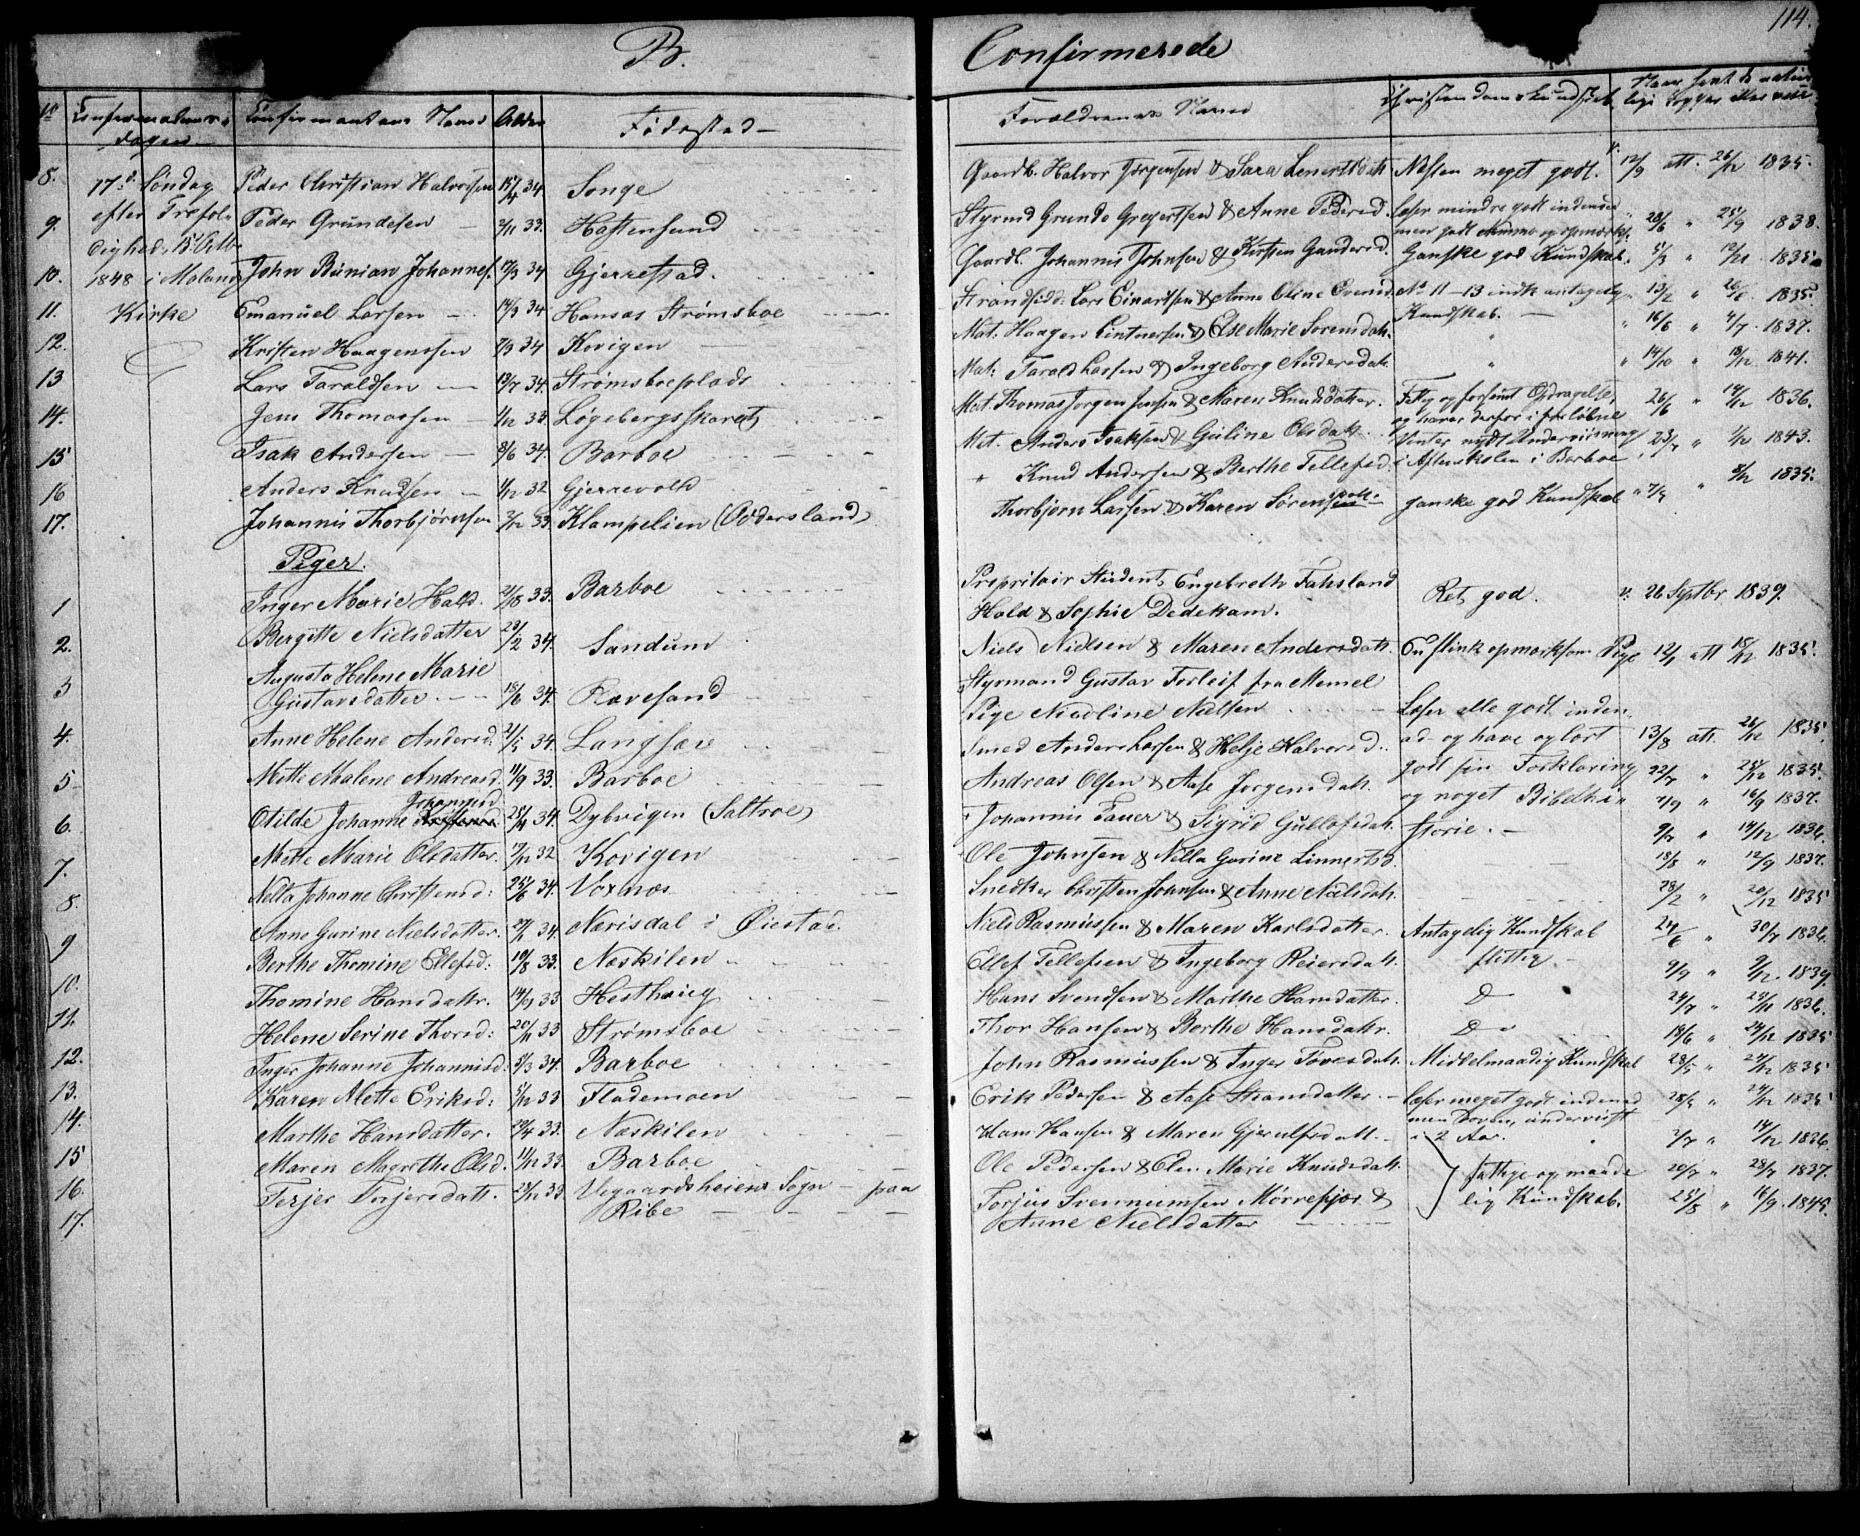 114.
B. Confirmerede
No Confirmations-dagen Confirmantens Navn Alder Fødested Forældrenes Navne Christendomskundskab
8. 17de Søndag Peder Christian Halvorsen 15/4 34 Songe Gaardb. Halvor Jørgensen & Sara Lenertsdatt. Næsten meget godt. v. 12/9 att. 26/12 1835.
9. efter Trefol- Peder Grundesen 2/11 33. Hastensund Styrmd Grunde Gregertsen & Anne Pedersd. Læser mindre godt indenad 28/6 " 25/9 1838.
dighed, 15 Octbr men godt
10. 1848 i Moland John Bunian Johannes. 17/9 34 Gjerrestad. Gaardb. Johannis Johnsen & Kirsten Gundersd. Ganske god Kundskab. 5/3 " 12/11 1835
11. Kirke Emanuel Larsen 14/3 34 Hansas Strømsboe Strandsidd. Lars Einartsen & Anne Oline Evensd. No 11-13 antagelig 13/2 " 26/8 1835.
Kundskab.
12. Kristen Haagenssen 7/3 34 Kovigen Mat. Haagen Gintnersen & Else Marie Sorensdatt. " 16/6 " 4/7. 1837.
13 Lars Taraldsen 19/7 34. Strømsboeplads Mat. Tarald Larsen & Ingeborg Andersdatt. " 14/10 " 18/12 1841.
14. Jens Thomassen 1/12 33. Løgebergsskaret Mat. Thomas Jørgen Jensen & Maren Knudsdatter. Fattig og forsømt Opdragelse, 26/6 " 14/12 1836.
og haver derfor i forløbne
15 Isak Andersen 8/6 34. Barboe Mat. Anders Isaksen & Guline Olsdatt. Vinter nydt Underviisning 23/7 " 1/10 1843.
16 Anders Knudsen 1/12 32 Gjerrevold " Knud Andersen & Berthe Tellefsd. i Aftenskolen i Barboe 7/9 " 8/12 1835.
17. Johannis Thorbjørnsen 2/12 33 Klampelien (Oddersland) Thorbjørn Larsen & Karen Sørensdatt. ganske god Kundskab
Piger.
1 Inger Marie Hald. 2/18 33. Barboe Propritair Student, Engebreth Faksland Ret god. v. 26 Septbr 1839.
Hald & Sophie Dedekam.
2. Bergitte Nielsdatter 23/2 34. Sandum Niels Nielsen & Maren Andersdatt. En flink opmærksom Pige 12/1 att 18/12 1835.
3 Augusta Helene Marie Styrmand Gustav Forleif fra Memel
Gustavsdatter 18/6 34. Ravesand Pige Nicoline Nielsen Læser alle godt inden
4. Anne Helene Andersd. 21/5 34. Langsæe Smed Anders Larsen & Helje Halvorsd. ad og have og lært 13/8 att. 26/12 1835.
5 Mette Malene Andreasd. 11/9 33. Barboe Andreas Olsen & Aase Jørgensdatt. godt sin Forklaring 22/7 " 26/12 1835.
6. Otilde Johanne Johannisd 25/4 34. Dybvigen (Saltroe) Johannis Fauer & Sigrid Gullofsdatt. og noget Bibelhi- 4/9 " 16/9 1837.
7. Mette Marie Olsdatter. 17/12 32 Kovigen Ole Johnsen & Nella Gurine Linnertsd. storie. 9/7 " 14/12 1836.
8. Nella Johanne Christensd: 25/6 34. Voxnæs Snedker Christen Johnsen & Anne Nielsdatt. 18/8 " 12/9 1837.
28/2 " 20/12 1835
9 Anne Gurine Nielsdatter. 27/1 34. Narisdal i Øiestad. Niels Rasmussen & Maren Karlsdatter. Antagelig Kundskab 24/6 " 30/7 1836.
10. Berthe Thomine Ellefsd: 10/8 33. Naskilen Ellef Tellefsen & Ingeborg Reiersdatt. flittig 9/9 " 9/12. 1839.
11. Thomine Hansdattr. 14/9 33 Hesthaug Hans Svendsen & Marthe Hansdatter. Do 24/7 " 29/10 1836.
12. Helene Serine Thorsd: 20/11 33 Strømsboe Thor Hansen & Berthe Hansdattr. Do 18/6 " 24/12 1835
13. Inger Johanne Johannisd: 5/3 34. Barboe John Rasmussen & Inger Tovesdatt. Middelmaadig Kundskab 28/5 " 27/12 1835
14. Karen Mette Eriksd: 5/12 33 Flademoen Erik Pedersen & Aase Hansdatter. Læser meget godt indenad 28/5 " 24/12 1835
15 Marthe Hansdatter. 29/4 33. Naskilen Hans Hansen & Maren Gjerulfsdatt. men Doven, underviist 3/7 " 14/12 1836.
i 2 Aar.
16. Maren Magrethe Olsd. 11/12 33. Barboe Ole Pedersen & Elen Marie Knudsdatt. fattige og maade 20/7 " 28/7 1837.
17. Terjer Torjersdatt. 24/12 33. Vegaardsheiens Sogn - paa Torjus Svennumsen Mørrefjær & lig Kundskab. 25/8 " 16/9. 1845.
Ribe Anne Nielsdatter